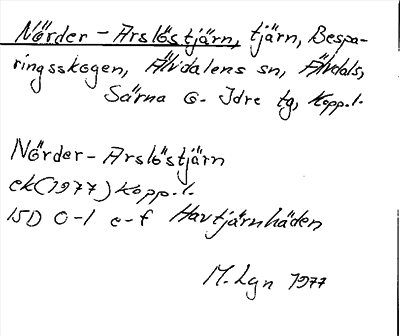 Nörder-Arslöstjärn, tjärn, Bespa-
ringsskogen, Älvdalens sn, Älvdals,
Särna o. Idre tg, Kopp.l.
Nörder-Arslöstjärn
ek(1977) Kopp.l.
15D 0-1 e-f Havtjärnhäden
M. Lgn 1977